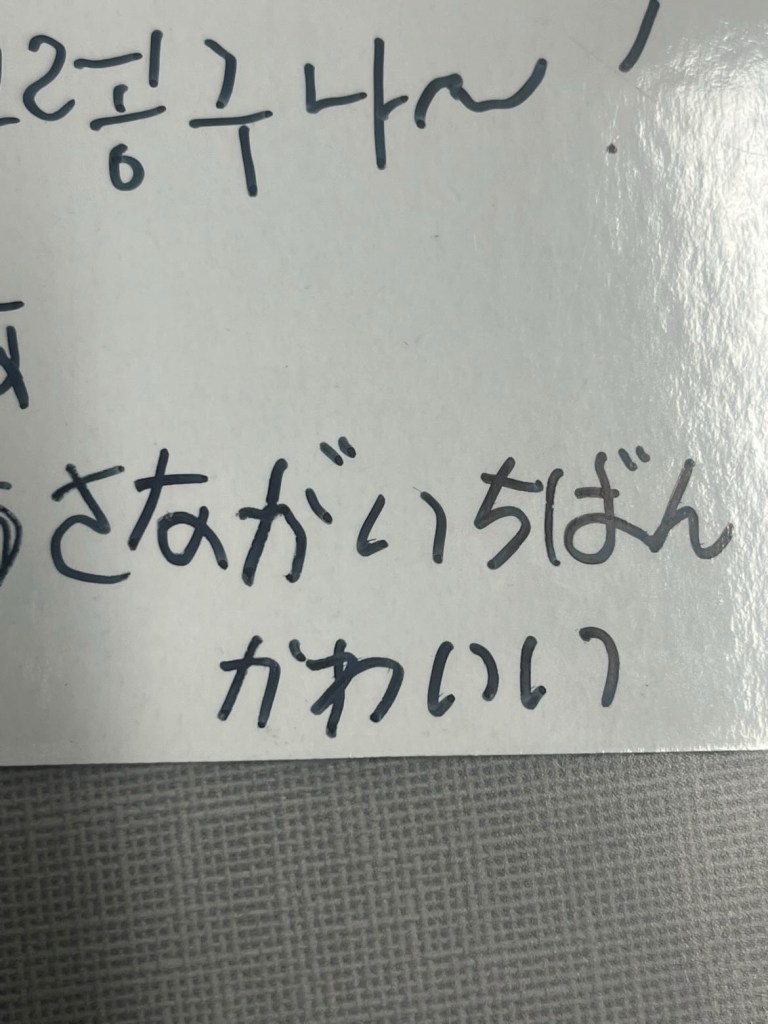 렇구나~!
さながいちばん
かわいい